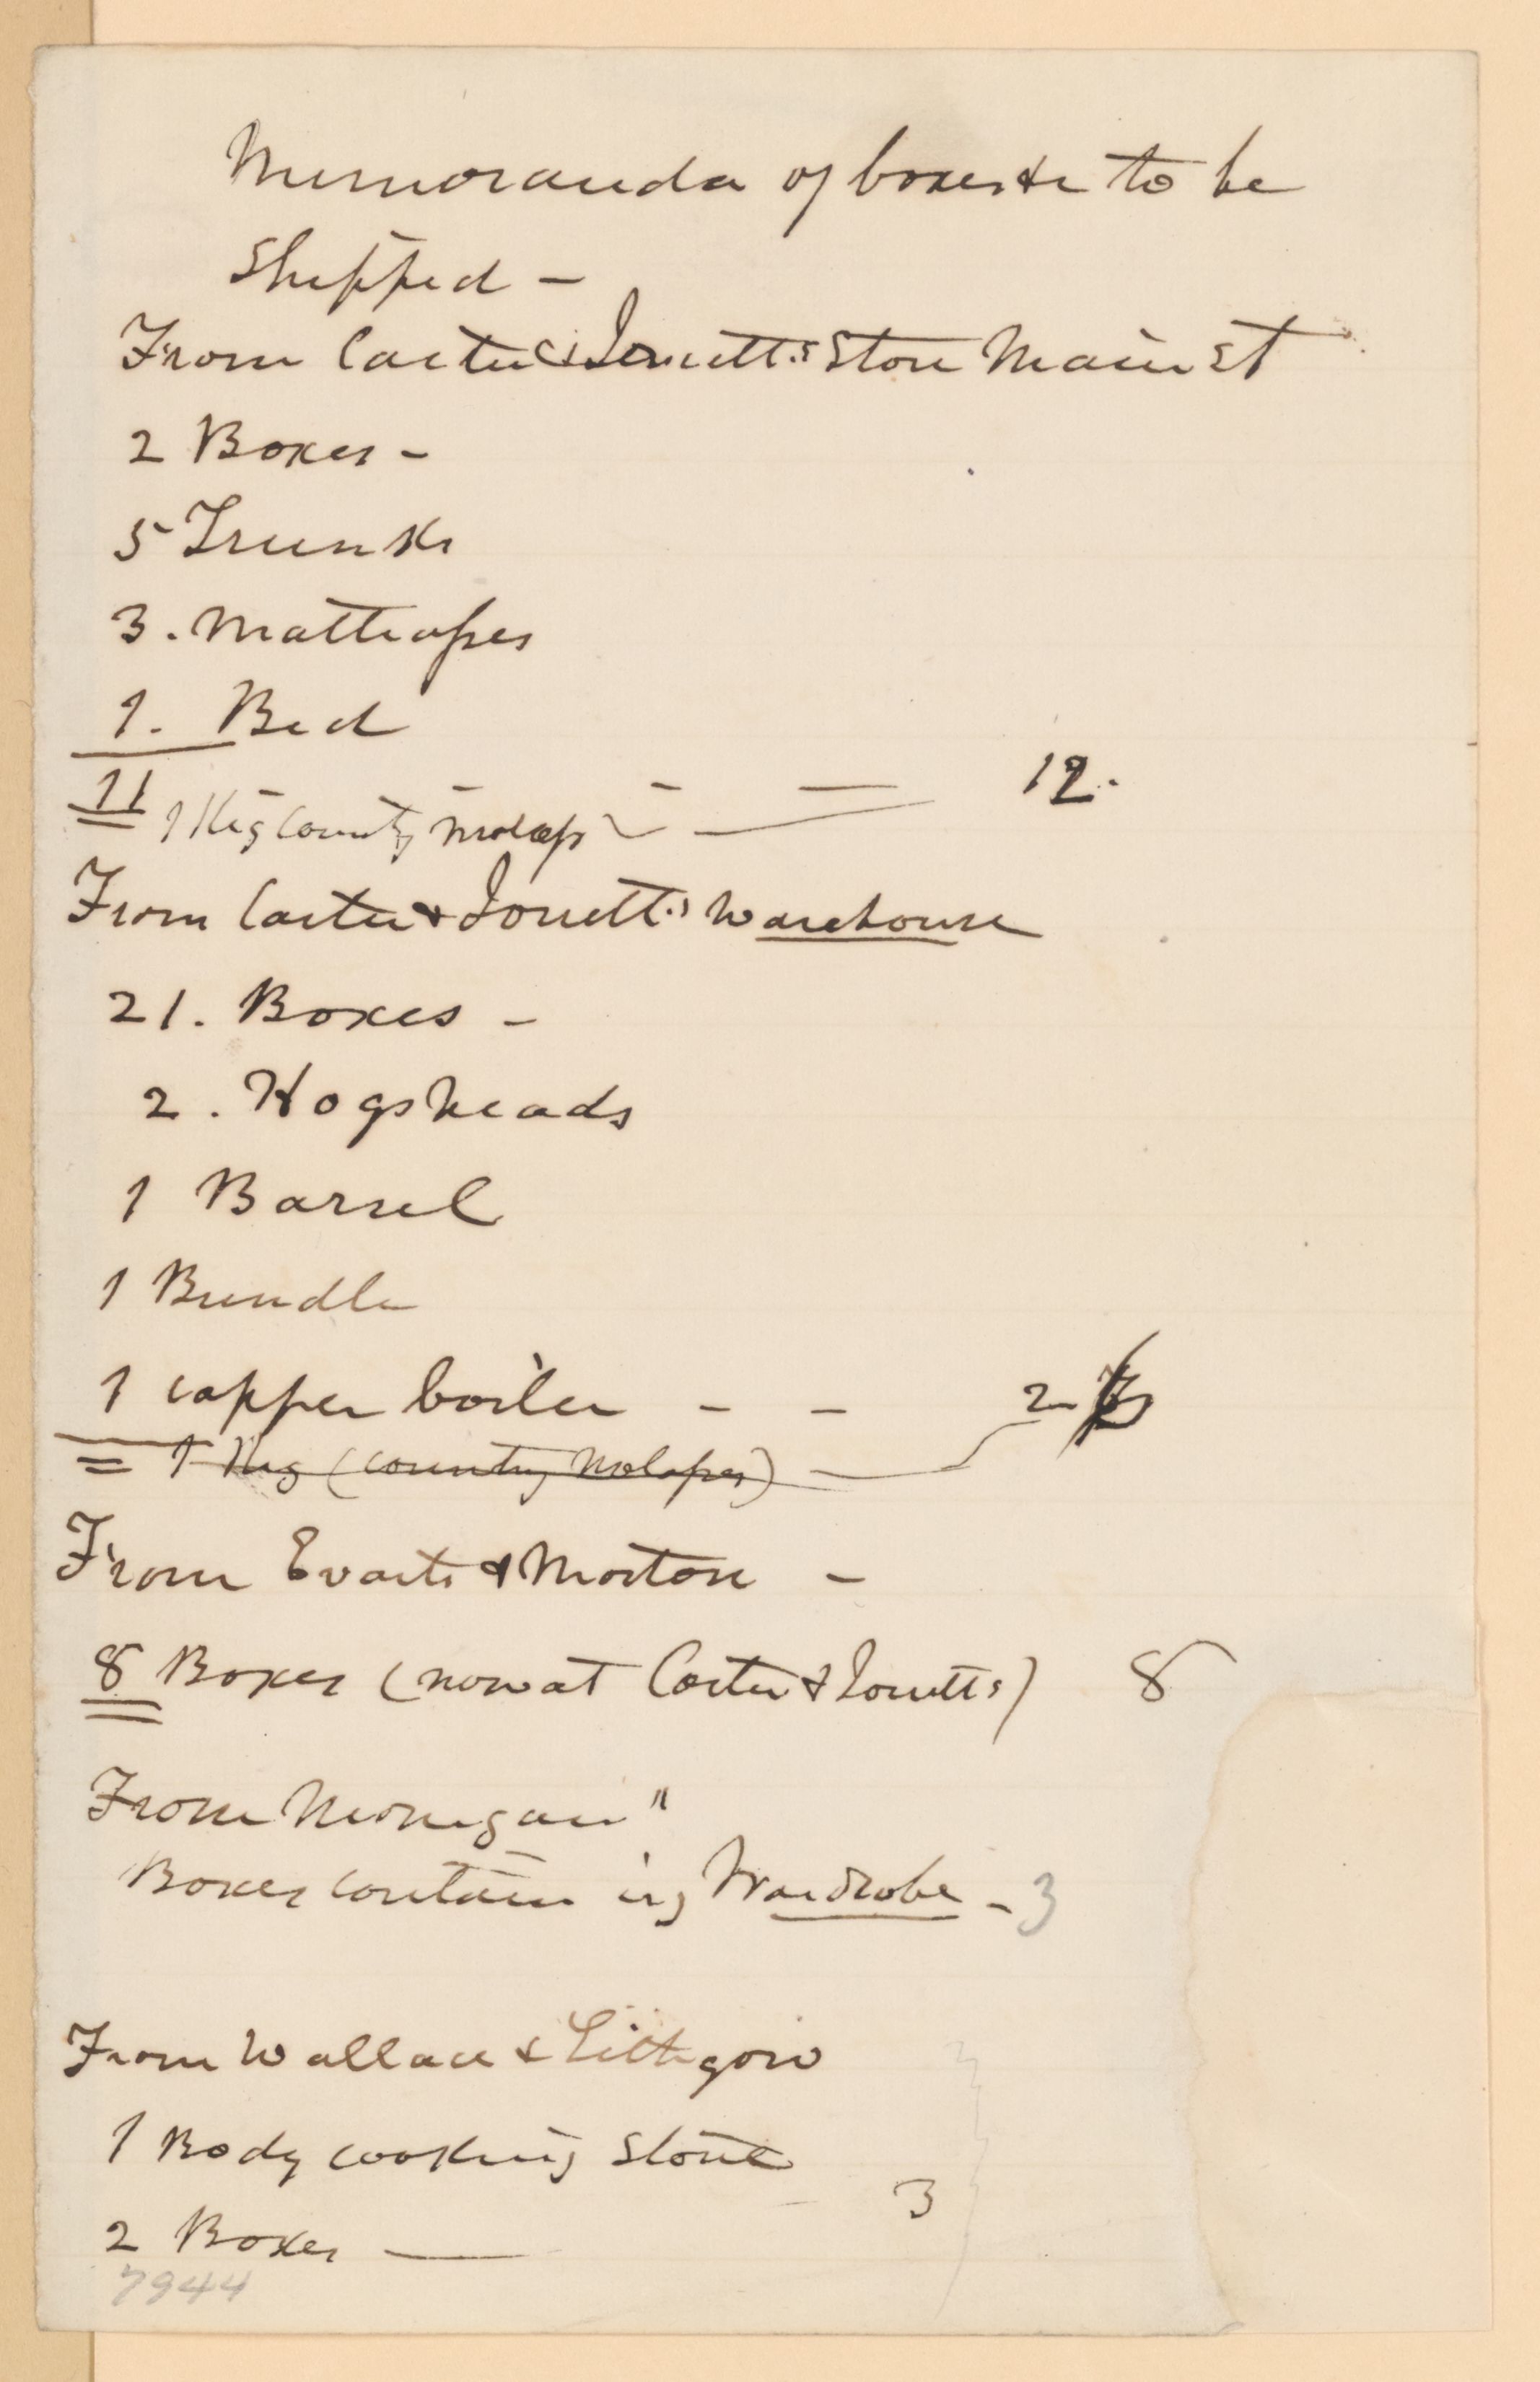 Memoranda of boxes &c to be
Shipped –
From Carter & Jouett's Store Main St
2 Boxes –
5 Trunks
3. Mattrasses
1. Bed
11 12.
1 Keg County Molass
From Carter & Jouett's Warehouse
21. Boxes –
2. Hogsheads
1 Barrel
1 Bundle
1 copper boiler – – 2
1 Keg (country Molasses)
From Evarts & Morton –
8 Boxes (now at Carter & Jouetts) 8
From Monigan"
Boxes containing Wardrobe – 3
From Wallace & Lithgow
1 Body cooking Stove
3
2 Boxes —
7944